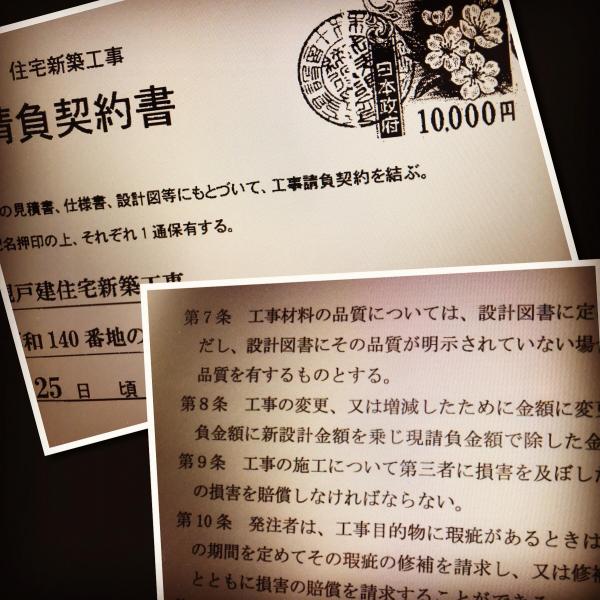 住宅新築工事
請負契約書
日本政府
10,000円
の見積書、仕様書、設計図等にもとづいて、工事請負契約を結ぶ。
名押印の上、それぞれ1通保有する。
戸建住宅新築工事
和140番地の
25日 頃
第7条 工事材料の品質については、設計図書に定
だし、設計図書にその品質が明示されていない場合
品質を有するものとする。
第8条 工事の変更、又は増減したために金額に変更
負金額に新設計金額を乗じ現請負金額で除した金
第9条 工事の施工について第三者に損害を及ぼした
の損害を賠償しなければならない。
第10条 発注者は、工事目的物に瑕疵があるときは
の期間を定めてその瑕疵の修補を請求し、又は修補
とともに損害の賠償を請求することができる